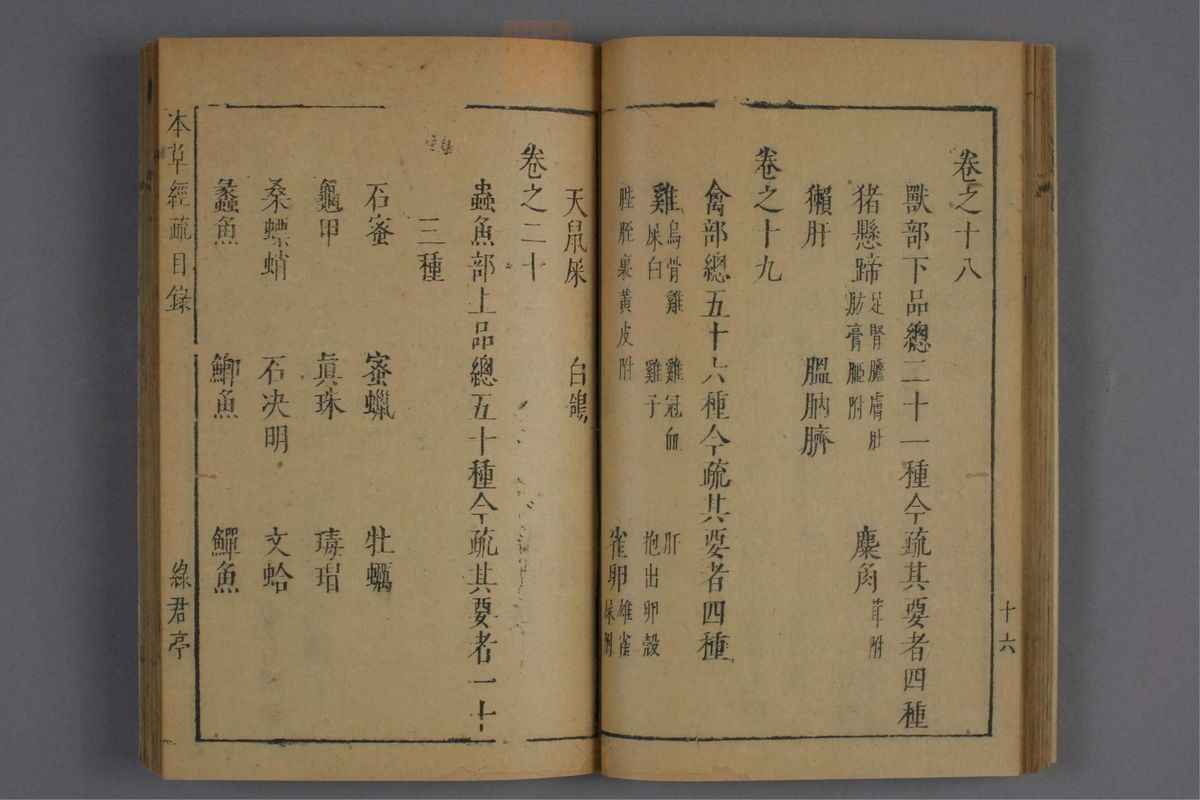 卷之十八
獸部下品總二十一種今疏其要者四種
猪懸蹄 足腎膽膚肚 肪膏䐈附 麋角 茸附
獺肝 膃肭臍
卷之十九
禽部總五十六種今疏其要者四種
雞 烏骨雞 雞冠血 肝 屎白 雞子 抱出卵殼
䏶胵裹黃皮附 雀卵 雄雀屎附
十六
天鼠屎 白鴿
卷之二十
蟲魚部上品總五十種今疏其要者一十
三種
石蜜 蜜蠟 牡蠣
龜甲 真珠 瑇瑁
桑螵蛸 石決明 文蛤
蠡魚 鯽魚 鱓魚
本草經疏目錄 綠君亭